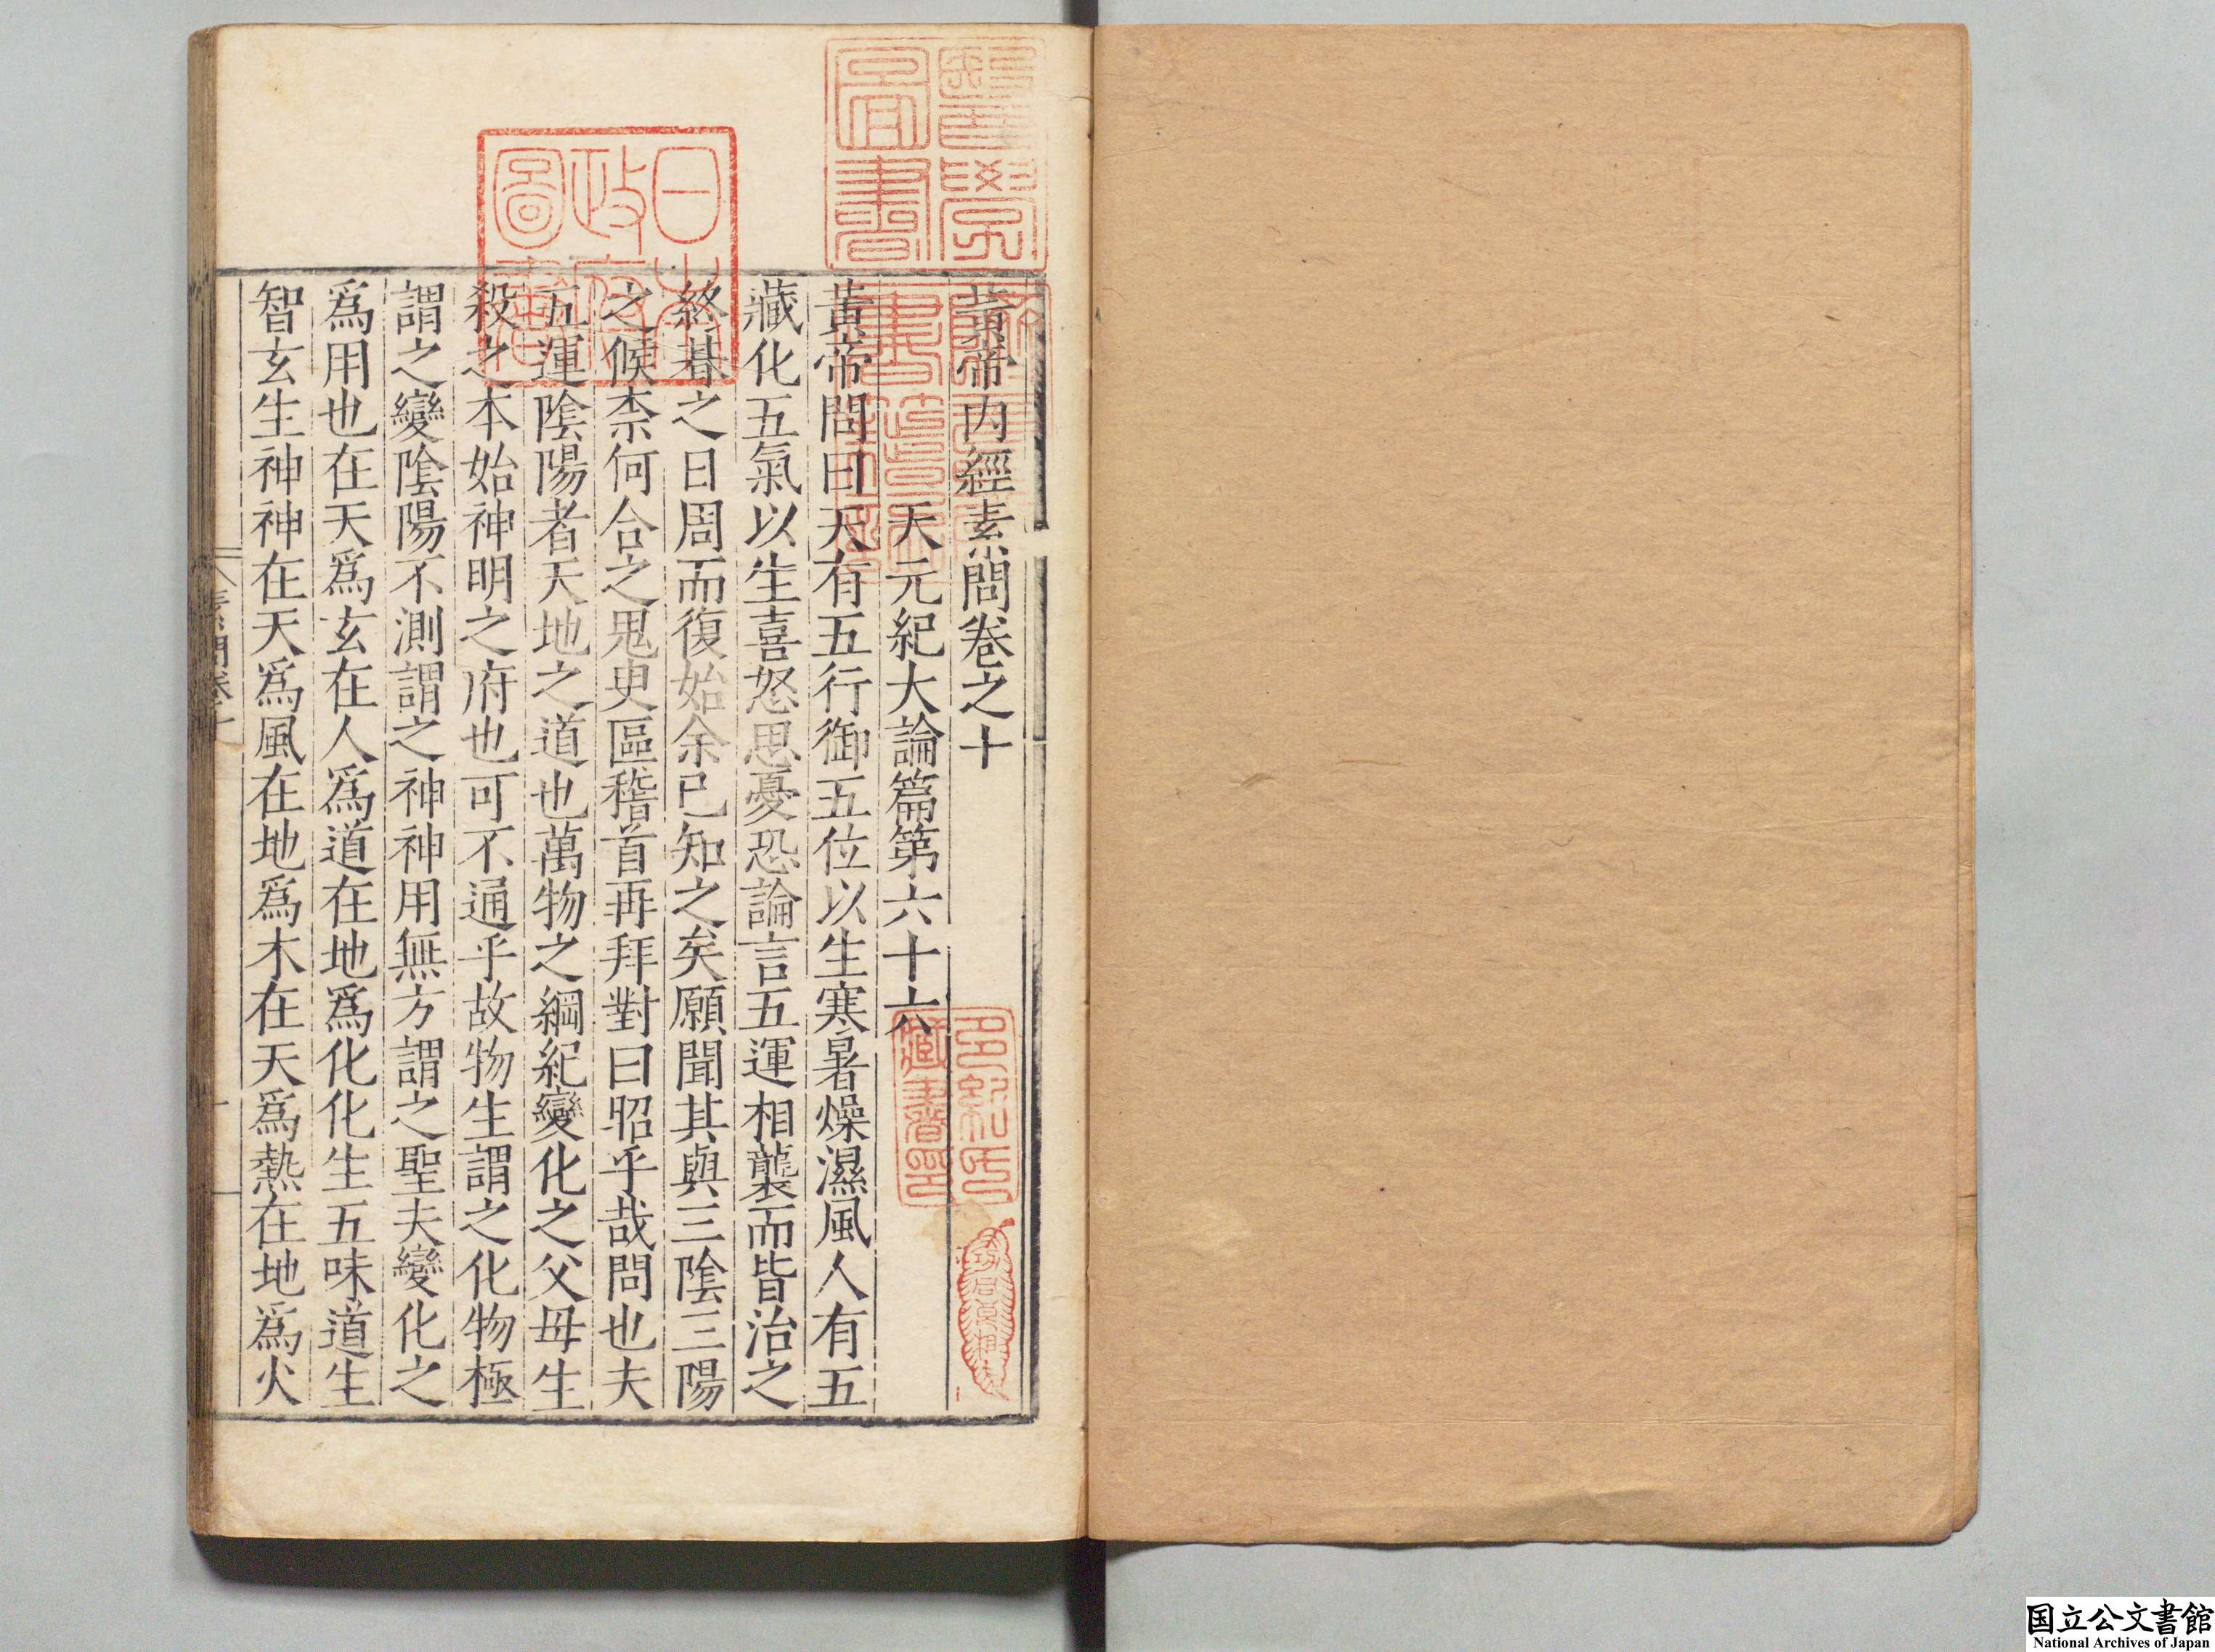 黃帝内經素問卷之十
天元紀大論篇第六十六
黃帝問曰天有五行御五位以生寒暑燥濕風人有五
藏化五氣以生喜怒思憂恐論言五運相襲而皆治之
終朞之日周而復始余已知之矣願聞其與三陰三陽
之候柰何合之鬼臾區稽首再拜對曰昭乎哉問也夫
五運陰陽者天地之道也萬物之綱紀變化之父母生
殺之本始神明之府也可不通乎故物生謂之化物極
謂之變陰陽不測謂之神神用無方謂之聖夫變化之
爲用也在天爲玄在人爲道在地爲化化生五味道生
智玄生神神在天爲風在地爲木在天爲熱在地爲火
素問卷十
一
醫學圖書
日本政府圖書
多紀氏藏書印
国立公文書館
National Archives of Japan